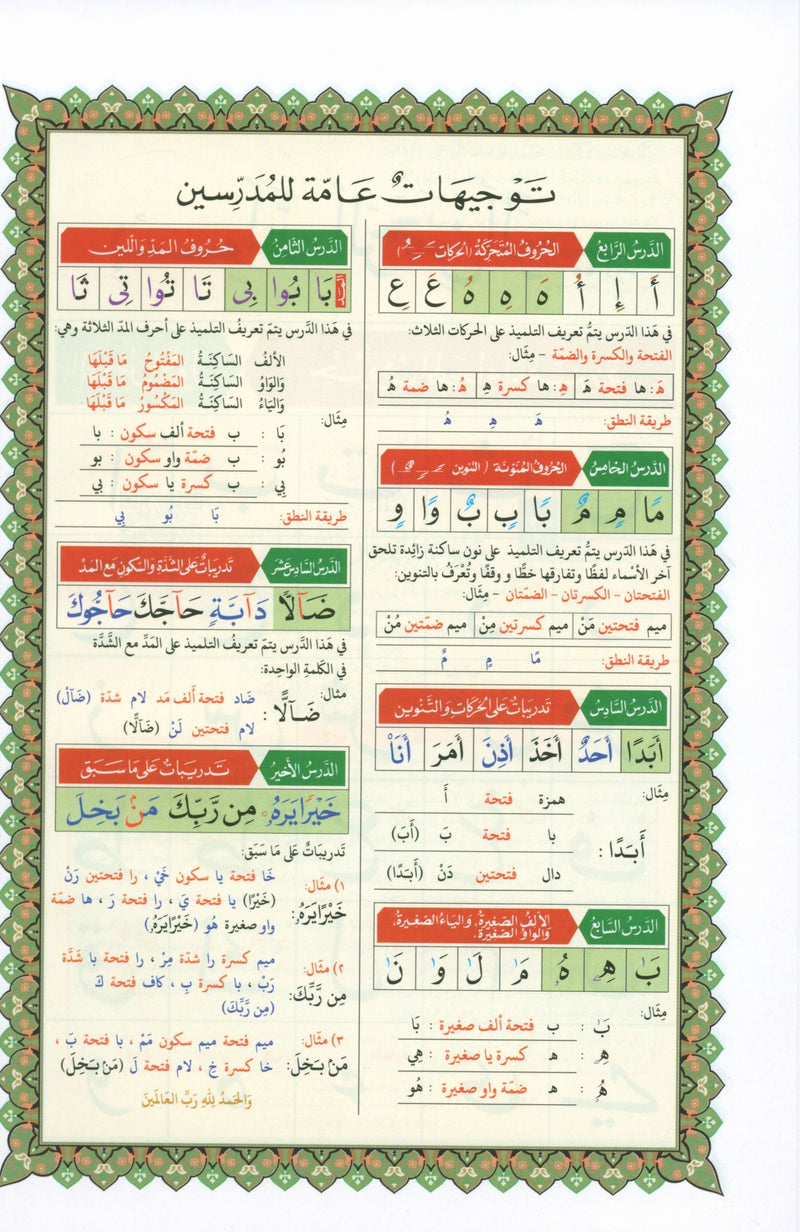 تَوْجِيهَاتٌ عَامّة للمُدَرِّسين
الدَرسُ الرَّابعُ
الحُرُوفُ المُتَحَرِّكَةُ (الحركات ـَ ـِ ـُ)
أَ إِ أُ هَ هِ هُ عَ عِ
في هَذا الدّرس يتمُّ تعريفُ التلميذ على الحركات الثلاث:
الفتحة والكسرة والضمّة - مِثَال:
هَ: ها فتحة هَ هِ: ها كسرة هِ هُ: ها ضمة هُ
طريقة النطق: هَ هِ هُ
الدَرسُ الخامِسُ
الحُرُوفُ المُنَوّنَة (التنوين ـً ـٍ ـٌ)
مًا مٍ مٌ بًا بٍ بٌ وًا وٍ
في هَذا الدّرس يتمُّ تعريفُ التلميذ على نون ساكنة زائِدة تلحق
آخر الأسْماء لفظًا وتفارقها خطًّا و وقفًا وتُعْرَفُ بالتنوين:
الفتحتان - الكسرتان - الضمّتان - مِثَال:
ميم فتحتين مَنْ ميم كسرتين مِنْ ميم ضمّتين مُنْ
طريقة النطق: مًا مٍ مٌ
الدَرسُ السَّادِسُ
تَدريبَاتٌ عَلى الحَركَاتِ وَالتَّنْوين
أَبَدًا أَحَدٌ أَخَذَ أَذِنَ أَمَرَ أَنَا۠
مِثَال:
أَبَدًا :
همزة فتحة أَ
با فتحة بَ (أَبَ)
دال فتحتين دَنْ (أَبَدًا)
الدَرسُ السَّابعُ
الألِفُ الصَغيرةُ، وَاليَاءُ الصَّغِيرةُ،
وَالوَاوُ الصَّغيرَة.
بَٰ هِۦ هُۥ مَٰ لَٰ وَٰ نَٰ
مِثَال:
بَٰ : ب فتحة ألف صغيرة : بَا
هِۦ : ه كسرة يا صغيرة : هِي
هُۥ : ه ضمّة واو صغيرة : هُو
الدَرسُ الثَّامنُ
حُروفُ المَدِّ وَاللين
المَد
بَا بُوا بِى تَا تُوا تِى ثَا
في هَذا الدَّرس يتمّ تعريفُ التلميذ على أحرف المدّ الثلاثة وهي:
الألفُ السَاكِنَةُ المَفْتُوحُ مَا قَبْلَهَا
وَالوَاوُ السَّاكِنَةُ المَضْمُومُ مَا قَبْلَهَا
وَاليَاءُ السَّاكِنَةُ المَكْسُورُ مَا قَبْلَهَا
مِثَال:
بَا : ب فتحة ألف سكون : با
بُو : ب ضمّة واو سكون : بو
بِي : ب كسرة يا سكون : بي
طريقة النطق: بَا بُو بِي
الدَرسُ السَّادسَ عَشَر
تَدريبَاتٌ عَلى الشَّدَّةِ وَالسُّكونِ مَعَ المَدّ
ضَآلًّا دَآبَّةٍ حَآجَّكَ حَآجُّوكَ
في هَذا الدَّرس يتمّ تعريفُ التلميذ على المَدِّ مع الشَّدَّة
في الكَلمةِ الواحِدة:
مثال: ضَآلًّا :
ضَاد فتحة ألف مَد لام شدّة (ضَآلّ)
لام فتحتين لَنْ (ضَآلًّا)
الدَرسُ الأخيرُ
تَدريبَاتٌ عَلى مَا سَبَق
خَيْرًا يَرَهُۥ مِن رَّبِّكَ مَنۢ بَخِلَ
تَدريبَاتٌ عَلى مَا سَبَقَ:
١) مثَال: خَا فتحة يا سكون خَيْ، را فتحتين رَنْ
خَيْرًا يَرَهُۥ: (خَيْرًا) يا فتحة يَ، را فتحة رَ، ها ضمّة
واو صغيرة هُو (خَيْرًا يَرَهُۥ)
٢) مثَال: ميم كسرة را شدّة مِرْ، را فتحة با شَدَّة
مِن رَّبِّكَ: رَبْ، با كسرة بِ، كاف فتحة كَ
(مِن رَّبِّكَ)
٣) مثَال: ميم فتحة ميم سكون مَمْ، با فتحة بَ،
مَنۢ بَخِلَ: خا كسرة خِ، لام فتحة لَ (مَنۢ بَخِلَ)
وَالحَمدُ للهِ رَبِّ العَالَمين